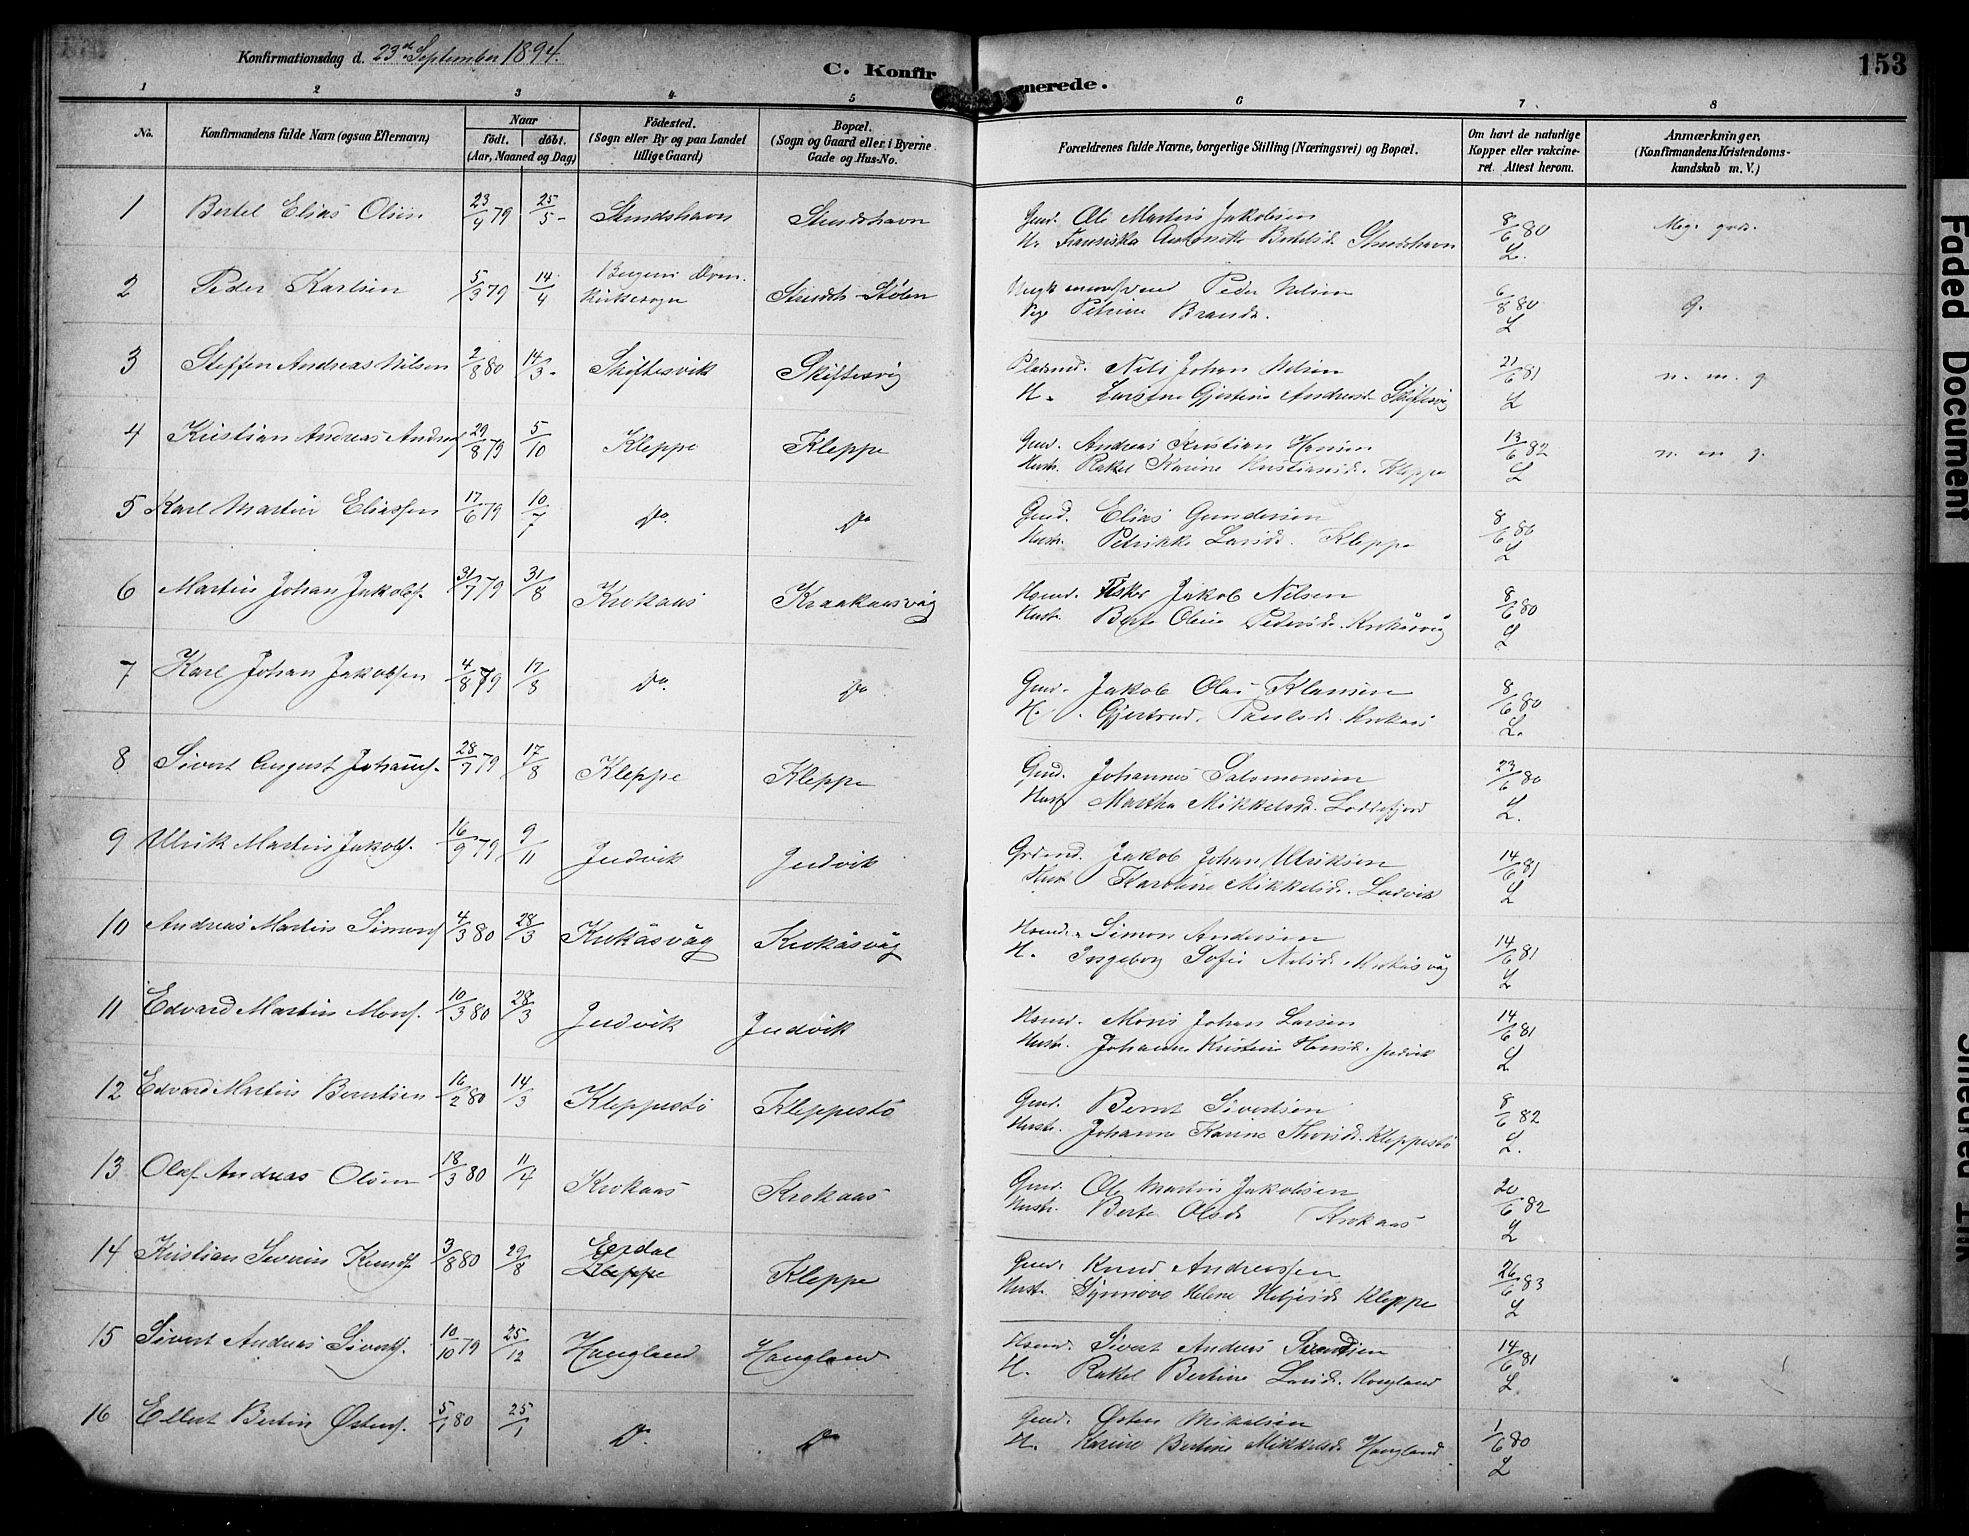 Konfirmationsdag d. 23de September 1894.
C. Konfirmerede.
153
1 2 3 4 5 6 7. 8
No.
Konfirmandens fulde Navn (ogsaa Efternavn)
Naar
födt. döbt.
(Aar, Maaned og Dag)
Födested.
(Sogn eller By og paa Landet
tillige Gaard)
Bopæl.
(Sogn og Gaard eller i Byerne
Gade og Hus-No.
Forældrenes fulde Navne, borgerlige Stilling (Næringsvei) og Bopæl.
Om havt de naturlige
Kopper eller vakcine-
ret. Attest herom.
Anmærkninger.
(Konfirmandens Kristendoms-
kundskab m. V.)
1 Bertel Elias Olsen 23/4 79 25/5 - Strudshavn Strudshavn
Gmd. Ole Martin Jakobsen 8/6 80
H. Fransiska Antonette Bertelsd. Strudshavn L.
2 Peder Karlsen 5/3 79 14/4 Bergens Dom-
kirkesogn
Peder Nilsen 6/8 80 g.
Petrine Brandt. L
3 Steffen Andreas Nilsen 2/8 80 14/3 - Skiftesvik Skiftesvig
Pladsmd. Nils Johan Nilsen 21/6 81 n. m. g
H. Gjertine Andersd. Skiftesvig L
4 Kristian Andreas Andreasf 29/8 79 5/10 Kleppe Kleppe
Gmd. Andreas Kristian Hansen 13/6 82 n. m g.
Hustr. Rakel Karine Kristiansd. Kleppe L
5 Karl Martin Eliassen 17/6 79 10/7 Do Do
Gmd. Elias Gundersen 8/6 80
Hustr. Petrikke Larsd. Kleppe L
6 Martin Johan Jakobs. 31/7 79 31/8 Krokaas Kraakaasvåg
Husmd. Fisker Jakob Nilsen 8/6 80
Hustr. Berte Oline Pedersd. Krokåsvåg L
7 Karl Johan Jakobsen 4/8 79 17/8 Do Do
Gmd. Jakob Olai Klausen 8/6 80
H. Gjertrud Paulsd. Krokaas L.
8 Sivert August Johanns. 28/7 79 17/8 Kleppe Kleppe
Gmd. Johannes Salomonsen 23/6 80
Hustr Martha Mikkelsd. Loddefjord L.
9 Ulrik Martin Jakobs. 16/9 79 9/11 Judvik Judvik
Grdmd. Jakob Johan Ulriksen 14/6 81
Hust. Karoline Mikkelsd. Ludvik L
10 Andreas Martin Simons 4/3 80 28/3 Krokåsvåg Krokåsvåg
Husmd. Simon Andersen 14/6 81
H. Ingeborg Sofie Nilsd. Krokåsvåg L
11 Edvard Martin Mons. 10/3 80 28/3 Judvik Judvik
Husmd. Mons Johan Larsen 14/6 81
Hustr. Johanne Kristine Hansd. Judvik L
12 Edvard Martin Berntsen 16/2 80 14/3 Kleppestö Kleppestö
Gmd. Bernt Sivertsen 8/6 82
Hustr. Johanne Karine Thorsd. Kleppestö L.
13 Olaf Andreas Olsen 18/3 80 11/4 Krokaas Krokaas
Gmd. Ole Martin Jakobsen 20/6 82
Hustr. Berte Olsd. Krokaas L
14 Kristian Severin Knuds. 3/8 80 29/8 Eerdal
Kleppe Kleppe
Gmd. Knud Andreassen 26/6 83
Hust. Synnøve Helene Helgesd. Kleppe L
15 Sivert Andreas Siverts. 10/10 79 25/12 Haugland Haugland
Husmd. Sivert Andreas 14/6 81
H. Rakel Bertine Larsd. Haugland L
16 Ellert Bertin Østens. 5/1 80 25/1 Do Do
Gmd. Østen Mikalsen 1/6 80
H. Karine Bertine Mikkelsd. Haugland L
Faded Document
Smeared Ink